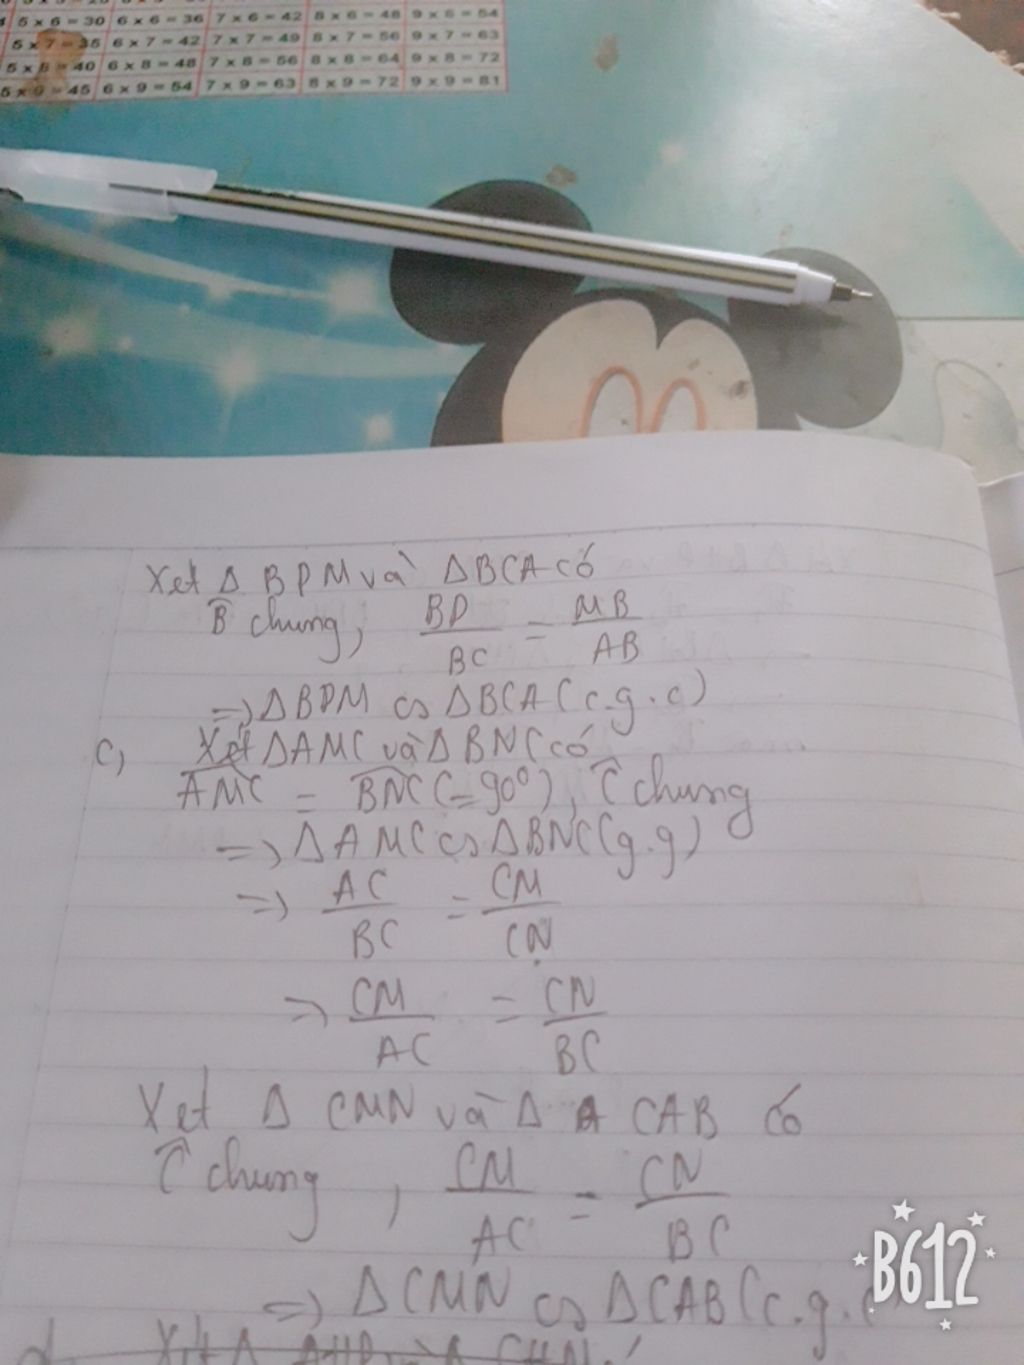 5 x 6 = 30 6 x 6 = 36 7 x 6 = 42 8 x 6 = 48 9 x 6 = 54
5 x 7 = 35 6 x 7 = 42 7 x 7 = 49 8 x 7 = 56 9 x 7 = 63
5 x 8 = 40 6 x 8 = 48 7 x 8 = 56 8 x 8 = 64 9 x 8 = 72
5 x 9 = 45 6 x 9 = 54 7 x 9 = 63 8 x 9 = 72 9 x 9 = 81
Xet Δ BPM và ΔBCA có
B̂ chung, BP/BC = MB/AB
=> ΔBPM ∽ ΔBCA (c.g.c)
c, Xét ΔAMC và ΔBNC có
AMC = BNC (=90°), Ĉ chung
=> ΔAMC ∽ ΔBNC (g.g)
=> AC/BC = CM/CN
=> CM/AC = CN/BC
Xet Δ CMN và Δ CAB có
Ĉ chung, CM/AC = CN/BC
=> ΔCMN ∽ ΔCAB (c.g.c
B612